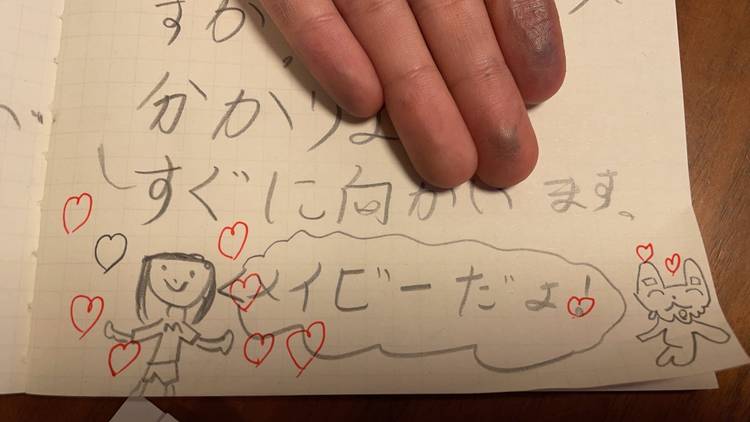 すか
分かり
すぐに向かいます。
メイビーだよ!
M